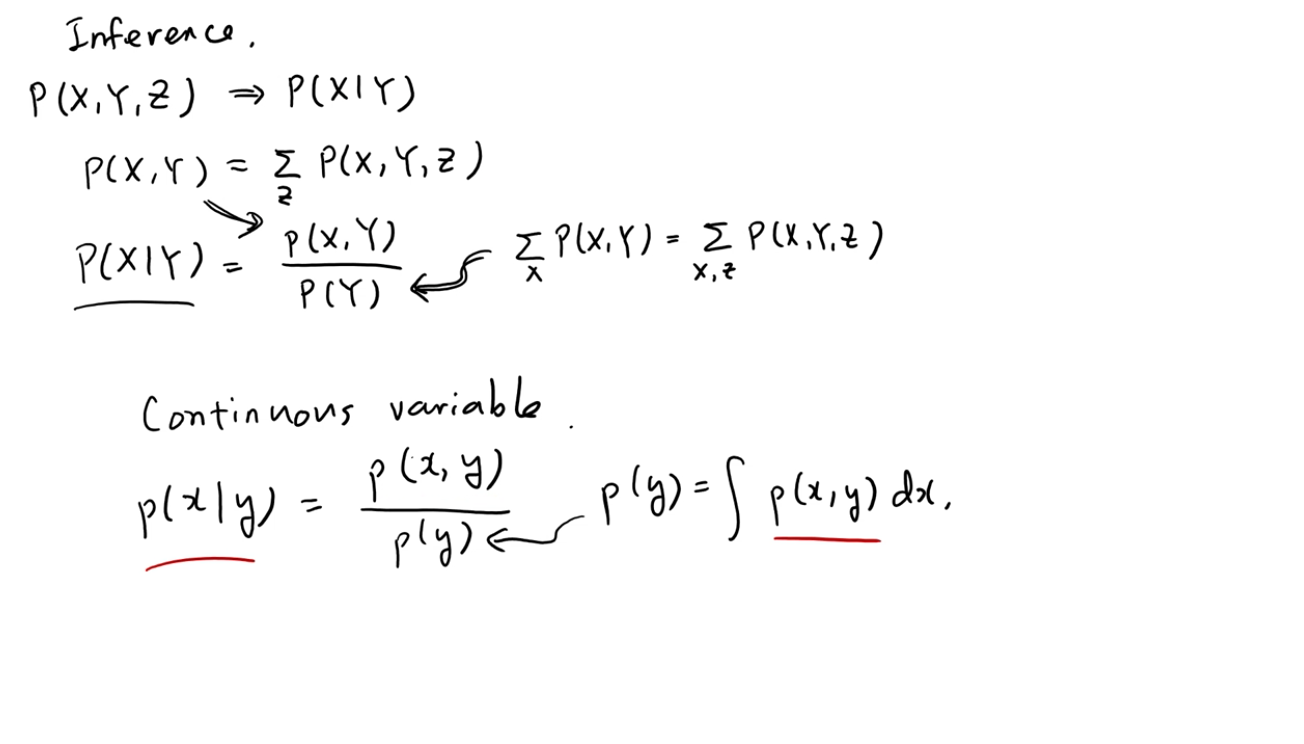 Inference.
P(X,Y,Z) ⇒ P(X|Y)
P(X,Y) = Σ_Z P(X,Y,Z)
P(X|Y) = P(X,Y) / P(Y) Σ_X P(X,Y) = Σ_X,Z P(X,Y,Z)
Continuous variable.
p(x|y) = p(x,y) / p(y) p(y) = ∫ p(x,y) dx.